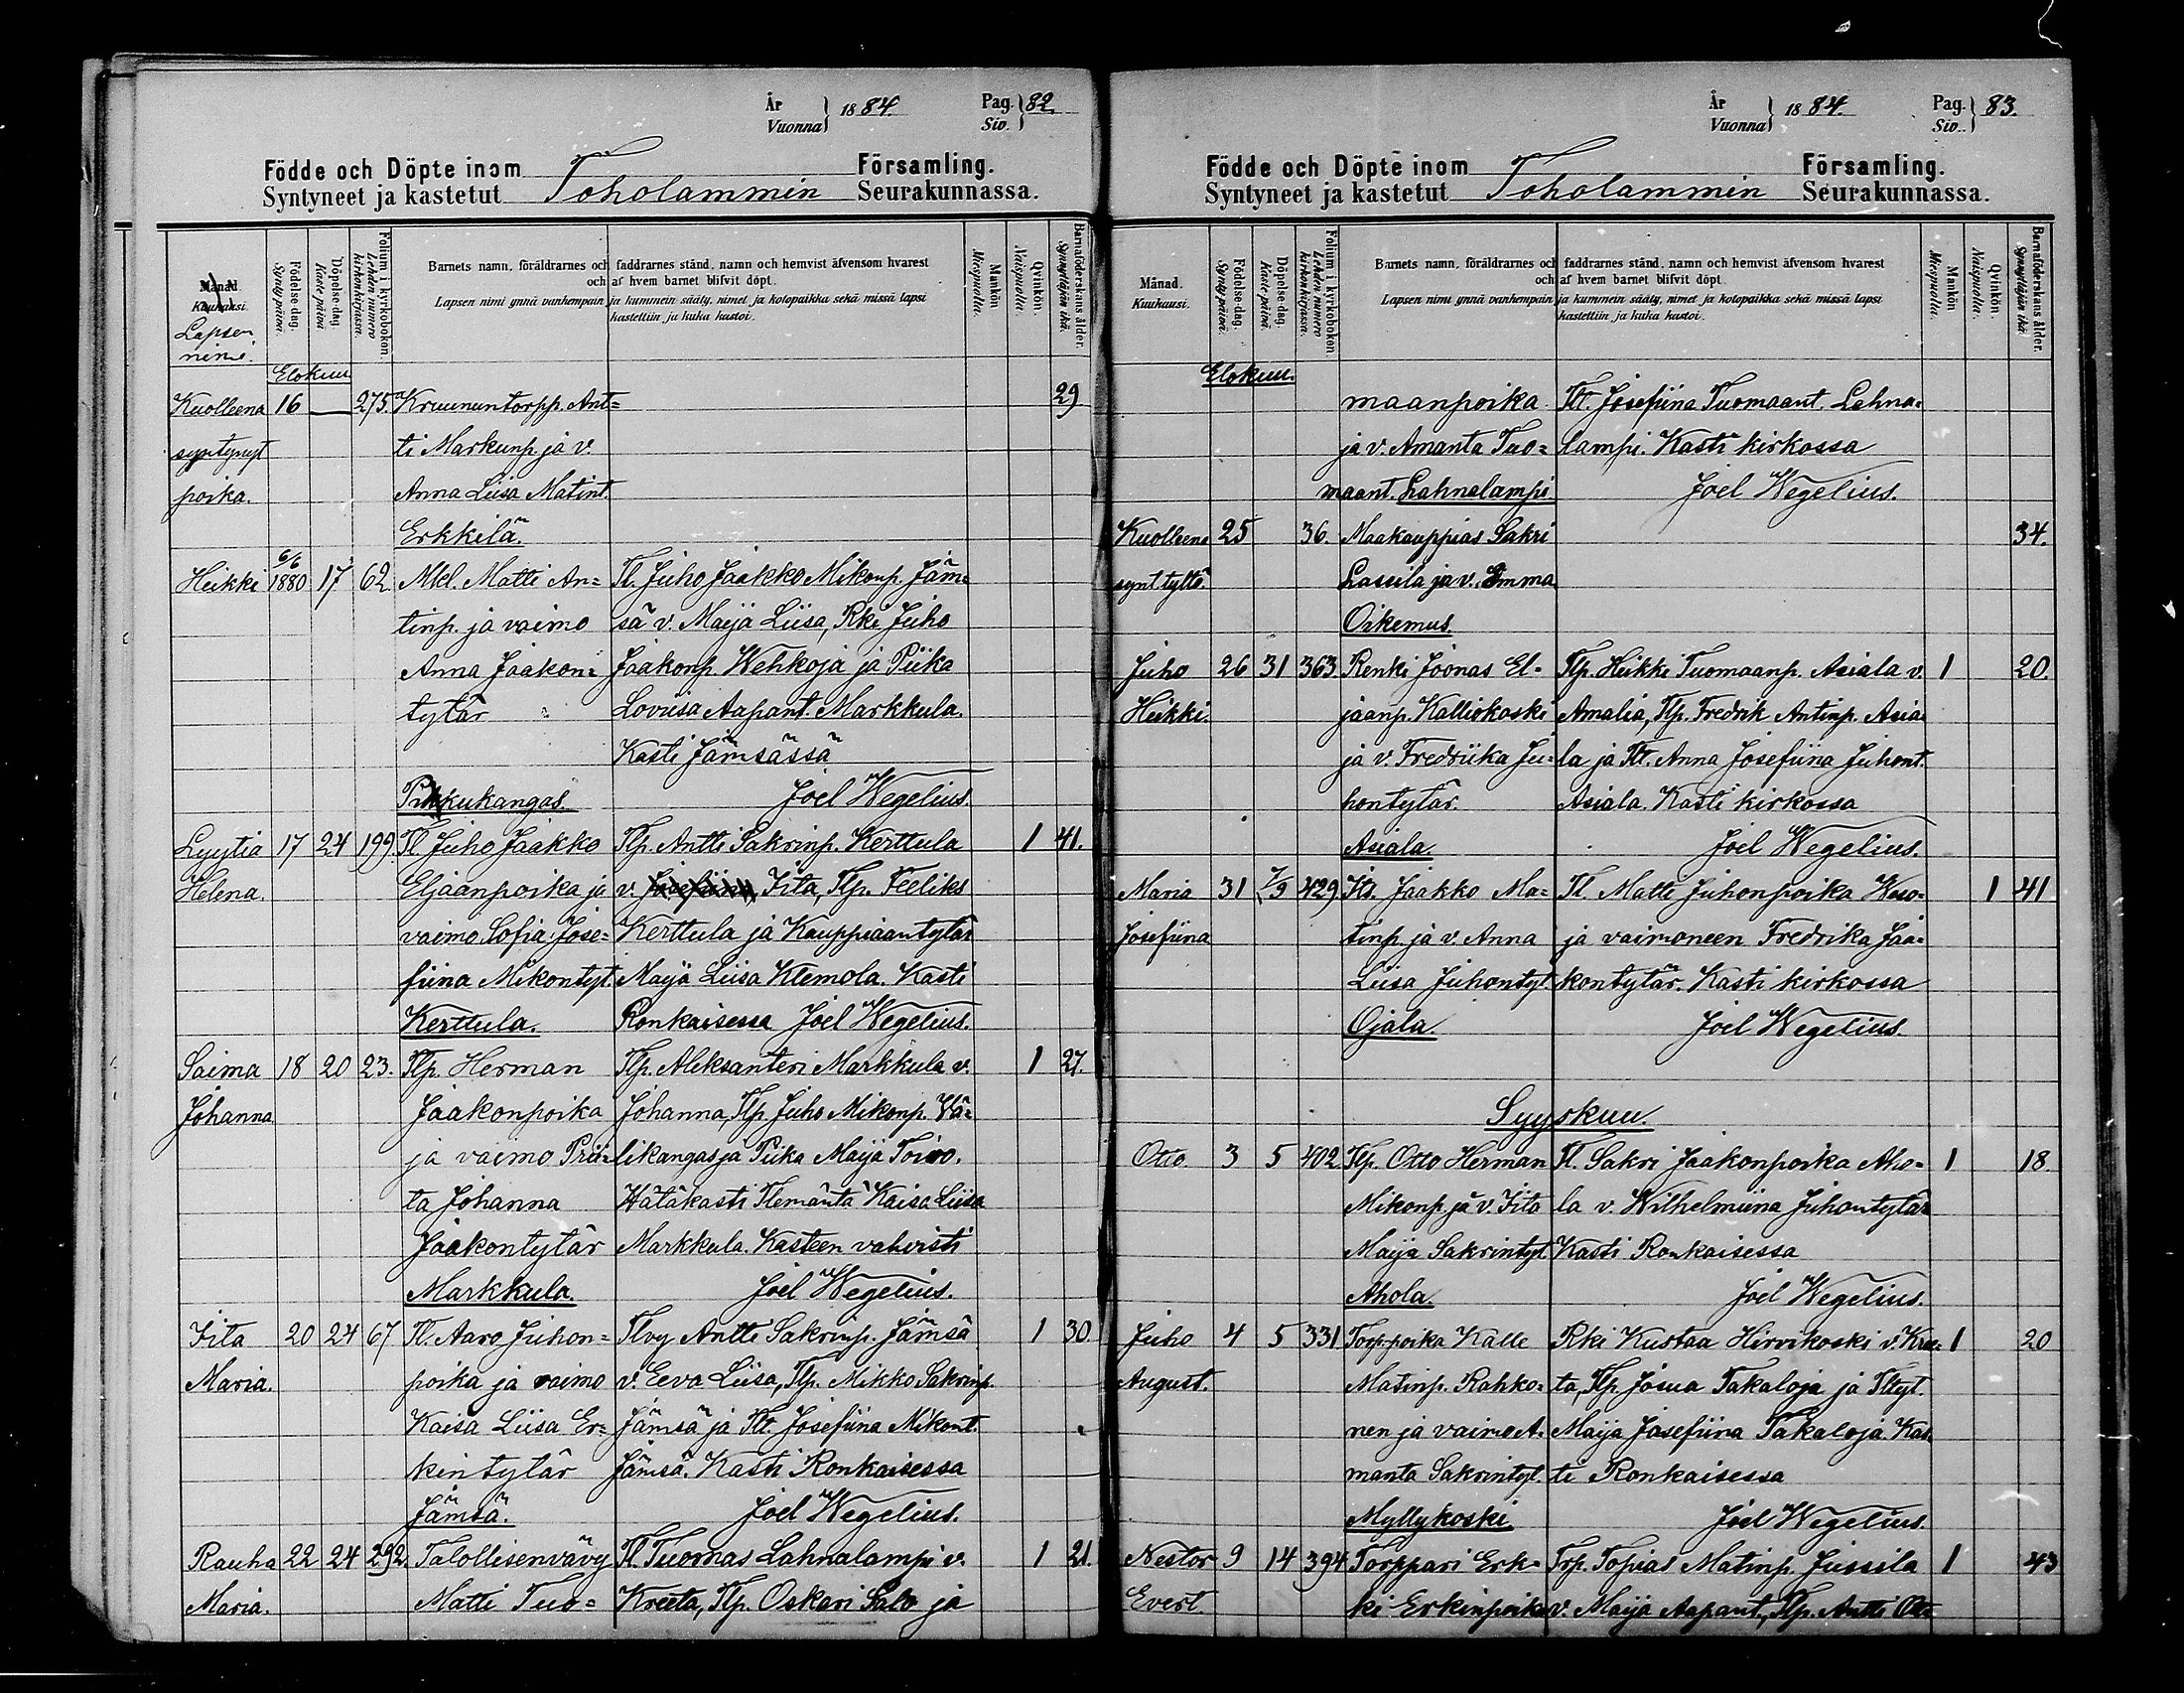 År Vuonna 1884. Pag. Siv. 82.
Födde och Döpte inom Församling.
Syntyneet ja kastetut Toholammin Seurakunnassa.
Månad. Kuukausi. Lapsen nimi.
Födelse-dag. Synty-päivä.
Döpelse-dag. Kaste-päivä.
Folium i kyrkoboken. Lehden numero kirkonkirjassa.
Barnets namn, föräldrarnes och faddrarnes stånd, namn och hemvist äfvensom hvarest
och af hvem barnet blifvit döpt.
Lapsen nimi ynnä vanhempain ja kummein sääty, nimet ja kotopaikka sekä missä lapsi
kastettiin ja kuka kastoi.
Mankön. Miespuolia.
Qvinkön. Naispuolia.
Barnaföderskans ålder. Synnyttäjän ikä.
Elokuu
Kuolleena 16 — 275. Kruununtorpp. Ant= 29
syntynyt ti Markunp. ja v.
poika. Anna Liisa Matint.
Erkkilä.
6/6
Heikki 1880 17 62. Mkl. Matti An= Tl. Juho Jaakko Mikonp. Jäm=
tinp. ja vaimo sä v. Maija Liisa, Rki Juho
Anna Jaakon= Jaakonp. Wehkoja ja Piika
tytär Loviisa Aapant. Markkula.
Kasti Jämsässä
Pikkukangas. Joel Wegelius.
Lyytia 17 24 199. Tl. Juho Jaakko Tlp. Antti Sakrinp. Kerttula 1 41.
Helena. Eljaanpoika ja v. Josefiina, Iita, Tlp. Feeliks
vaimo Sofia Jose= Kerttula ja Kauppiaantytär
fiina Mikontyt. Maija Liisa Klemola. Kasti
Kerttula. Ronkaisessa Joel Wegelius.
Saima 18 20 23. Tlp. Herman Tlp. Aleksanteri Markkula v. 1 27.
Johanna Jaakonpoika Johanna, Tlp. Juho Mikonp. Wä=
ja vaimo Prii= likangas ja Piika Maija Toivo.
ta Johanna Hätäkasti Tlemäntä Kaisa Liisa
Jaakontytär Markkula. Kasteen vahvisti
Markkula. Joel Wegelius.
Iita 20 24 67 Tl. Aaro Juhon= Tlvy Antti Sakrinp. Jämsä 1 30.
Maria. poika ja vaimo v. Eeva Liisa, Tlp. Mikko Sakrinp.
Kaisa Liisa Er= Jämsä ja Tlt. Josefiina Mikont.
kin tytär Jämsä. Kasti Ronkaisessa
Jämsä. Joel Wegelius.
Rauha 22 24 292. Talollisenvävy Tl Tuomas Lahnalampi v. 1 21.
Maria. Matti Tuo= Kreeta, Tlp. Oskari Salo ja
År Vuonna 1884. Pag. Siv. 83.
Födde och Döpte inom Församling.
Syntyneet ja kastetut Toholammin Seurakunnassa.
Månad. Kuukausi.
Födelse-dag. Synty-päivä.
Döpelse-dag. Kaste-päivä.
Folium i kyrkoboken. Lehden numero kirkonkirjassa.
Barnets namn, föräldrarnes och faddrarnes stånd, namn och hemvist äfvensom hvarest
och af hvem barnet blifvit döpt.
Lapsen nimi ynnä vanhempain ja kummein sääty, nimet ja kotopaikka sekä missä lapsi
kastettiin ja kuka kastoi.
Mankön. Miespuolia.
Qvinkön. Naispuolia.
Barnaföderskans ålder. Synnyttäjän ikä.
Elokuu.
maanpoika Tlt. Josefiina Tuomaant. Lahna=
ja v. Amanta Tuo= lampi. Kasti kirkossa
maant. Lahnalampi Joel Wegelius.
Kuolleena 25 36. Maakauppias Sakri 34.
synt. tyttö. Lassila ja v. Emma
Oikemus.
Juho 26 31 363 Renki Joonas El= Tlp. Heikki Tuomaanp. Asiala v. 1 20.
Heikki. jaanp. Kalliokoski Amalia, Tlp. Fredrik Antinp. Asia=
ja v. Fredriika Ju= la ja Tlt. Anna Josefiina Juhont.
hontytär. Asiala. Kasti kirkossa
Asiala. Joel Wegelius.
Maria 31 7/9 429. Its. Jaakko Ma= Tl. Matti Juhonpoika Wuo= 1 41
Josefiina tinp. ja v. Anna ja vaimoneen Fredrika Jaa=
Liisa Juhontyt. kontytär. Kasti kirkossa
Ojala. Joel Wegelius.
Syyskuu.
Otto 3 5 402 Tlp. Otto Herman Tl. Sakri Jaakonpoika Aho= 1 18
Mikonp. ja v. Iita la v. Wilhelmiina Juhontytär
Maija Sakrintyt. Kasti Ronkaisessa
Ahola. Joel Wegelius.
Juho 4 5 331 Torp. poika Kalle Rki Kustaa Hirvikoski v. Kree= 1 20
August. Matinp. Rahko= ta, Tlp. Josua Takaloja ja Tltyt.
nen ja vaimo A= Maija Josefiina Takaloja. Kas=
manta Sakrintyt. ti Ronkaisessa
Myllykoski Joel Wegelius.
Nestor 9 14 394 Torppari Erk= Trp. Topias Matinp. Jussila 1 43
Evert. ki Erkinpoika v. Maija Aapant., Tlp. Antti